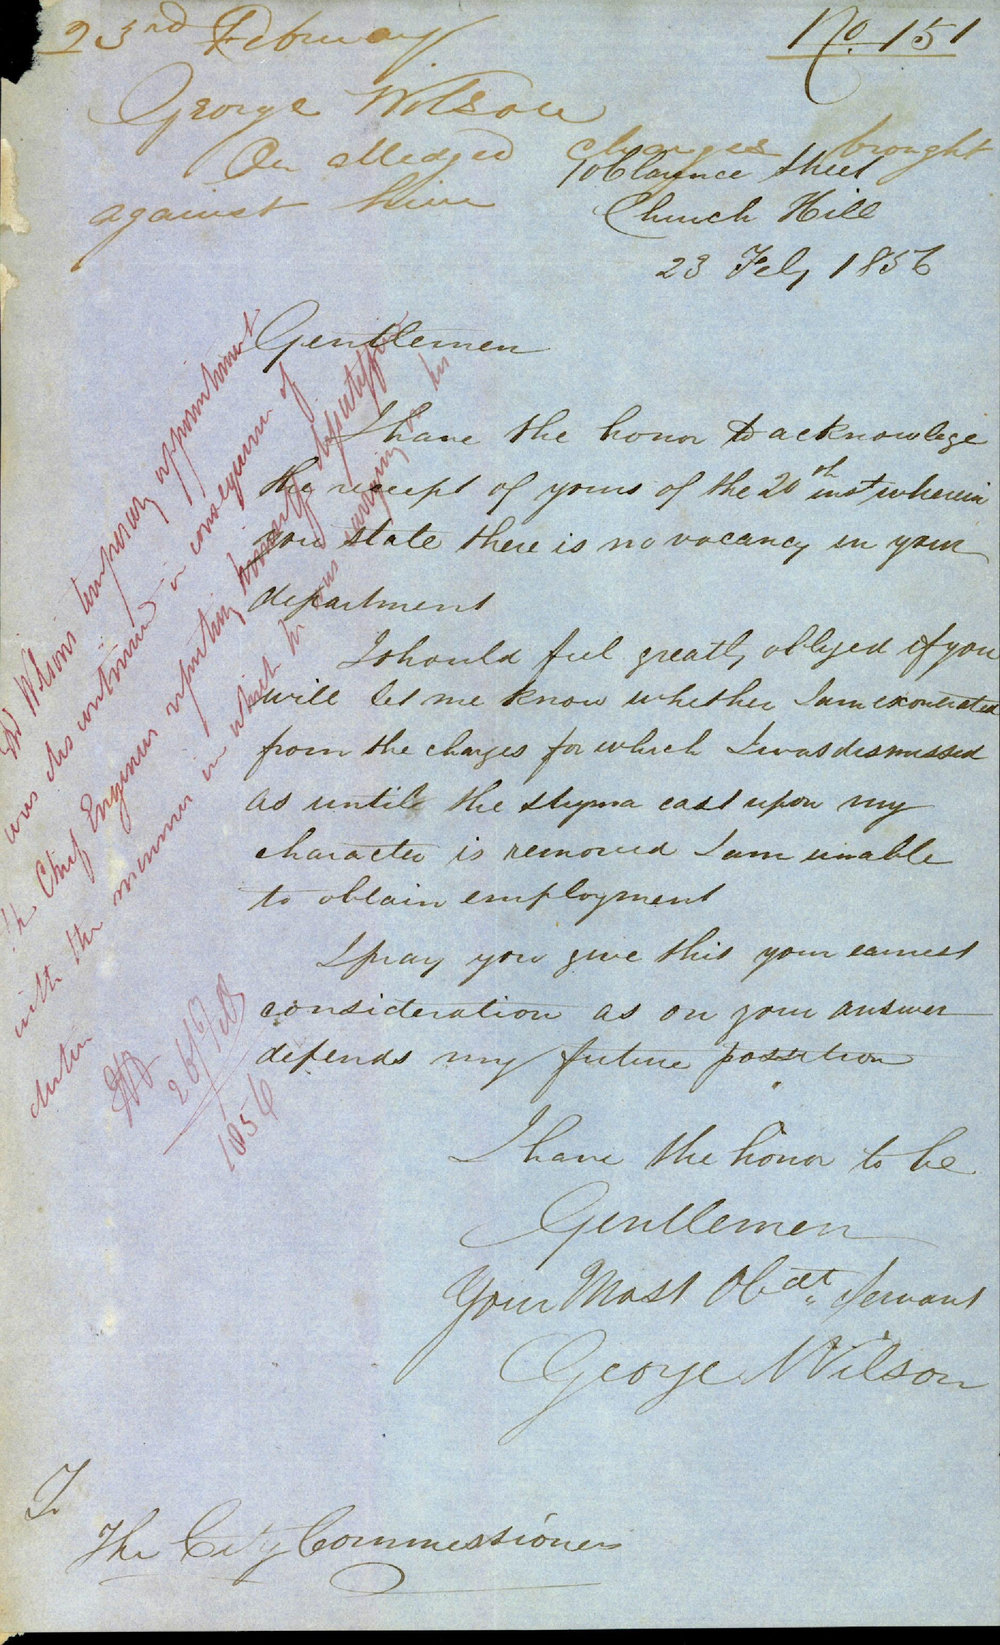 23rd February
No. 151
George Wilson
On alledged charges brought
against him
10 Clarence Street
Church Hill
23 Feby 1856
Gentlemen
I have the honor to acknowlege
the receipt of yours of the 20th inst wherein
you state there is no vacancy in your
department
I should feel greatly oblyed if you
will let me know whether I am exonerated
from the charges for which I was dismissed
as until the stygma cast upon my
character is removed I am unable
to obtain employment
I pray you give this your earnest
consideration as on your answer
depends my future possition
I have the honor to be
Gentlemen
Your Most Obdt. Servant
George Wilson
To
The City Commissioners
Mr Wilsons temporary appointment
was discontinued in consequence of
the Chief Engineer reporting dissatisfied
with the manner in which he was carrying on his
duties
26/Feb
1856